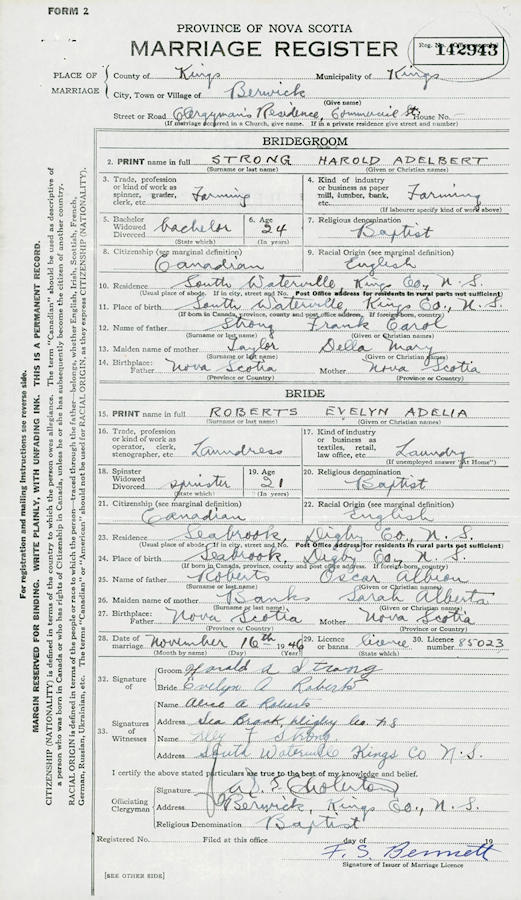 FORM 2
PROVINCE OF NOVA SCOTIA
MARRIAGE REGISTER
Reg. No. 142943
PLACE OF MARRIAGE
County of Kings Municipality of Kings
City, Town or Village of Berwick
(Give name)
Street or Road Clergyman's Residence, Commercial St. House No. —
(If marriage occurred in a Church, give name. If in a private residence give street and number)
BRIDEGROOM
2. PRINT name in full STRONG HAROLD ADELBERT
(Surname or last name) (Given or Christian names)
3. Trade, profession or kind of work as spinner, grader, clerk, etc. Farming
4. Kind of industry or business as paper mill, lumber, bank, etc. Farming
(If labourer specify kind of work above)
5. Bachelor Widowed Divorced bachelor (State which)
6. Age 24 (In years)
7. Religious denomination Baptist
8. Citizenship (see marginal definition) Canadian
9. Racial Origin (see marginal definition) English
10. Residence South Waterville, King Co., N. S.
(Usual place of abode. If in city, street and No. Post Office address for residents in rural parts not sufficient)
11. Place of birth South Waterville, Kings Co., N. S.
(If born in Canada, province, county and post office address. If foreign born, country)
12. Name of father Strong Frank Carol
(Surname or last name) (Given or Christian names)
13. Maiden name of mother Taylor Della Mary
(Surname or last name) (Given or Christian names)
14. Birthplace: Father Nova Scotia Mother Nova Scotia
(Province or Country) (Province or Country)
BRIDE
15. PRINT name in full ROBERTS EVELYN ADELIA
(Surname or last name) (Given or Christian names)
16. Trade, profession or kind of work as operator, clerk, stenographer, etc. Laundress
17. Kind of industry or business as textiles, retail, law office, etc. Laundry
(If unemployed answer "At Home")
18. Spinster Widowed Divorced spinster (State which)
19. Age 21 (In years)
20. Religious denomination Baptist
21. Citizenship (see marginal definition) Canadian
22. Racial Origin (see marginal definition) English
23. Residence Seabrook, Digby Co., N. S.
(Usual place of abode. If in city, street and No. Post Office address for residents in rural parts not sufficient)
24. Place of birth Seabrook, Digby Co., N. S.
(If born in Canada, province, county and post office address. If foreign born, country)
25. Name of father Roberts Oscar Albion
(Surname or last name) (Given or Christian names)
26. Maiden name of mother Banks Sarah Alberta
(Surname or last name) (Given or Christian names)
27. Birthplace: Father Nova Scotia Mother Nova Scotia
(Province or Country) (Province or Country)
28. Date of marriage November 16th 1946
(Month by name) (Day) (Year)
29. Licence or banns licence (State which)
30. Licence number 85023
32. Signature of
Groom Harold A Strong
Bride Evelyn A Roberts
33. Signatures of Witnesses
Name Alice A Roberts
Address Sea Brook, Digby Co. N S
Name F Strong
Address South Waterville Kings Co N.S.
I certify the above stated particulars are true to the best of my knowledge and belief.
Officiating Clergyman
Signature
Address Berwick, Kings Co., N. S.
Religious Denomination Baptist
Registered No. Filed at this office day of 19
F. S. Bennett
Signature of Issuer of Marriage Licence
[SEE OTHER SIDE]
For registration and mailing instructions see reverse side.
MARGIN RESERVED FOR BINDING. WRITE PLAINLY, WITH UNFADING INK. THIS IS A PERMANENT RECORD.
CITIZENSHIP (NATIONALITY) is defined in terms of the country to which the person owes allegiance. The term "Canadian" should be used as descriptive of
a person who was born in Canada or who has rights of Citizenship in Canada, unless he or she has subsequently become the citizen of another country.
RACIAL ORIGIN is defined in terms of the people or race to which the person—traced through the father—belongs, whether English, Irish, Scottish, French,
German, Russian, Ukrainian, etc. The terms "Canadian" or "American" should not be used for RACIAL ORIGIN, as they express CITIZENSHIP (NATIONALITY).